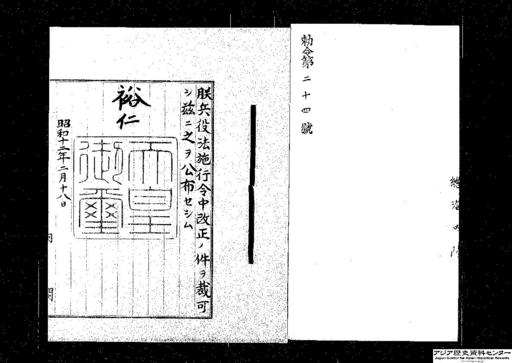 勅令第二十四號
朕兵役法施行令中改正ノ件ヲ裁可
シ茲ニ之ヲ公布セシム
裕仁
天皇御璽
昭和十二年二月十八日
内閣
アジア歴史資料センター
Japan Center for Asian Historical Records